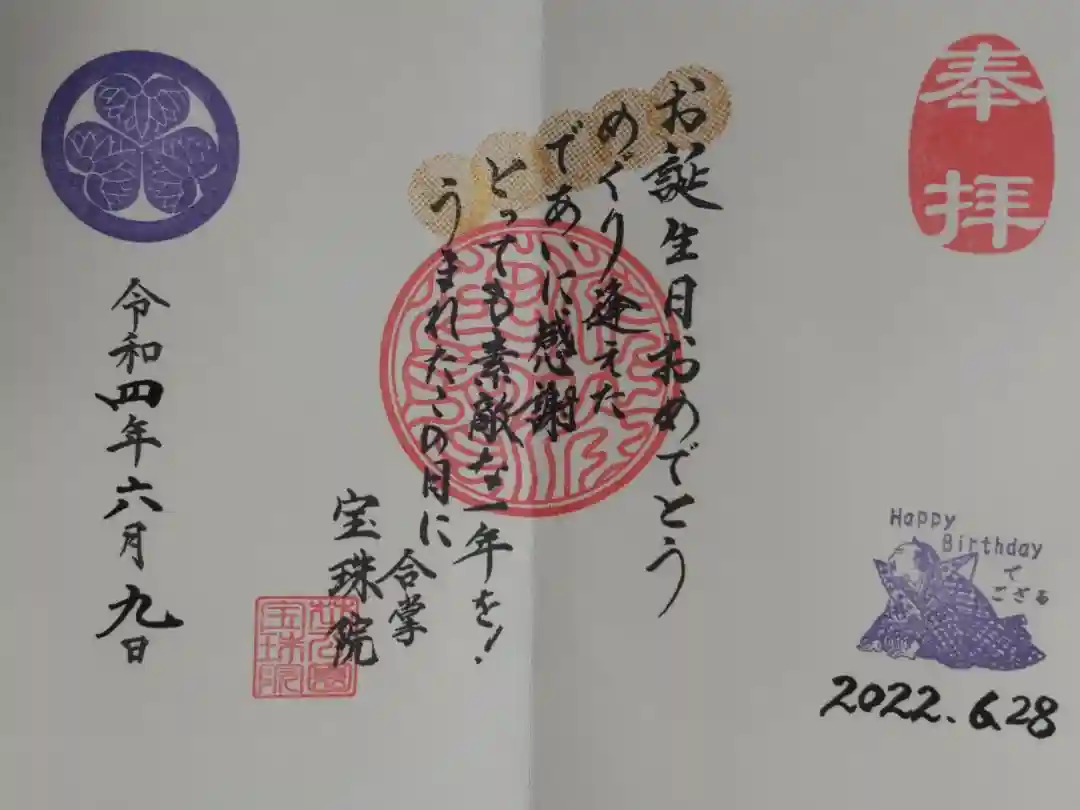 奉拝
お誕生日おめでとう
めぐり逢えた
であいに感謝
とっても素敵な一年を!
うまれたこの日に
合掌
宝珠院
令和四年六月九日
Happy
Birthday
で
ござる
2022.6.28
宝珠院